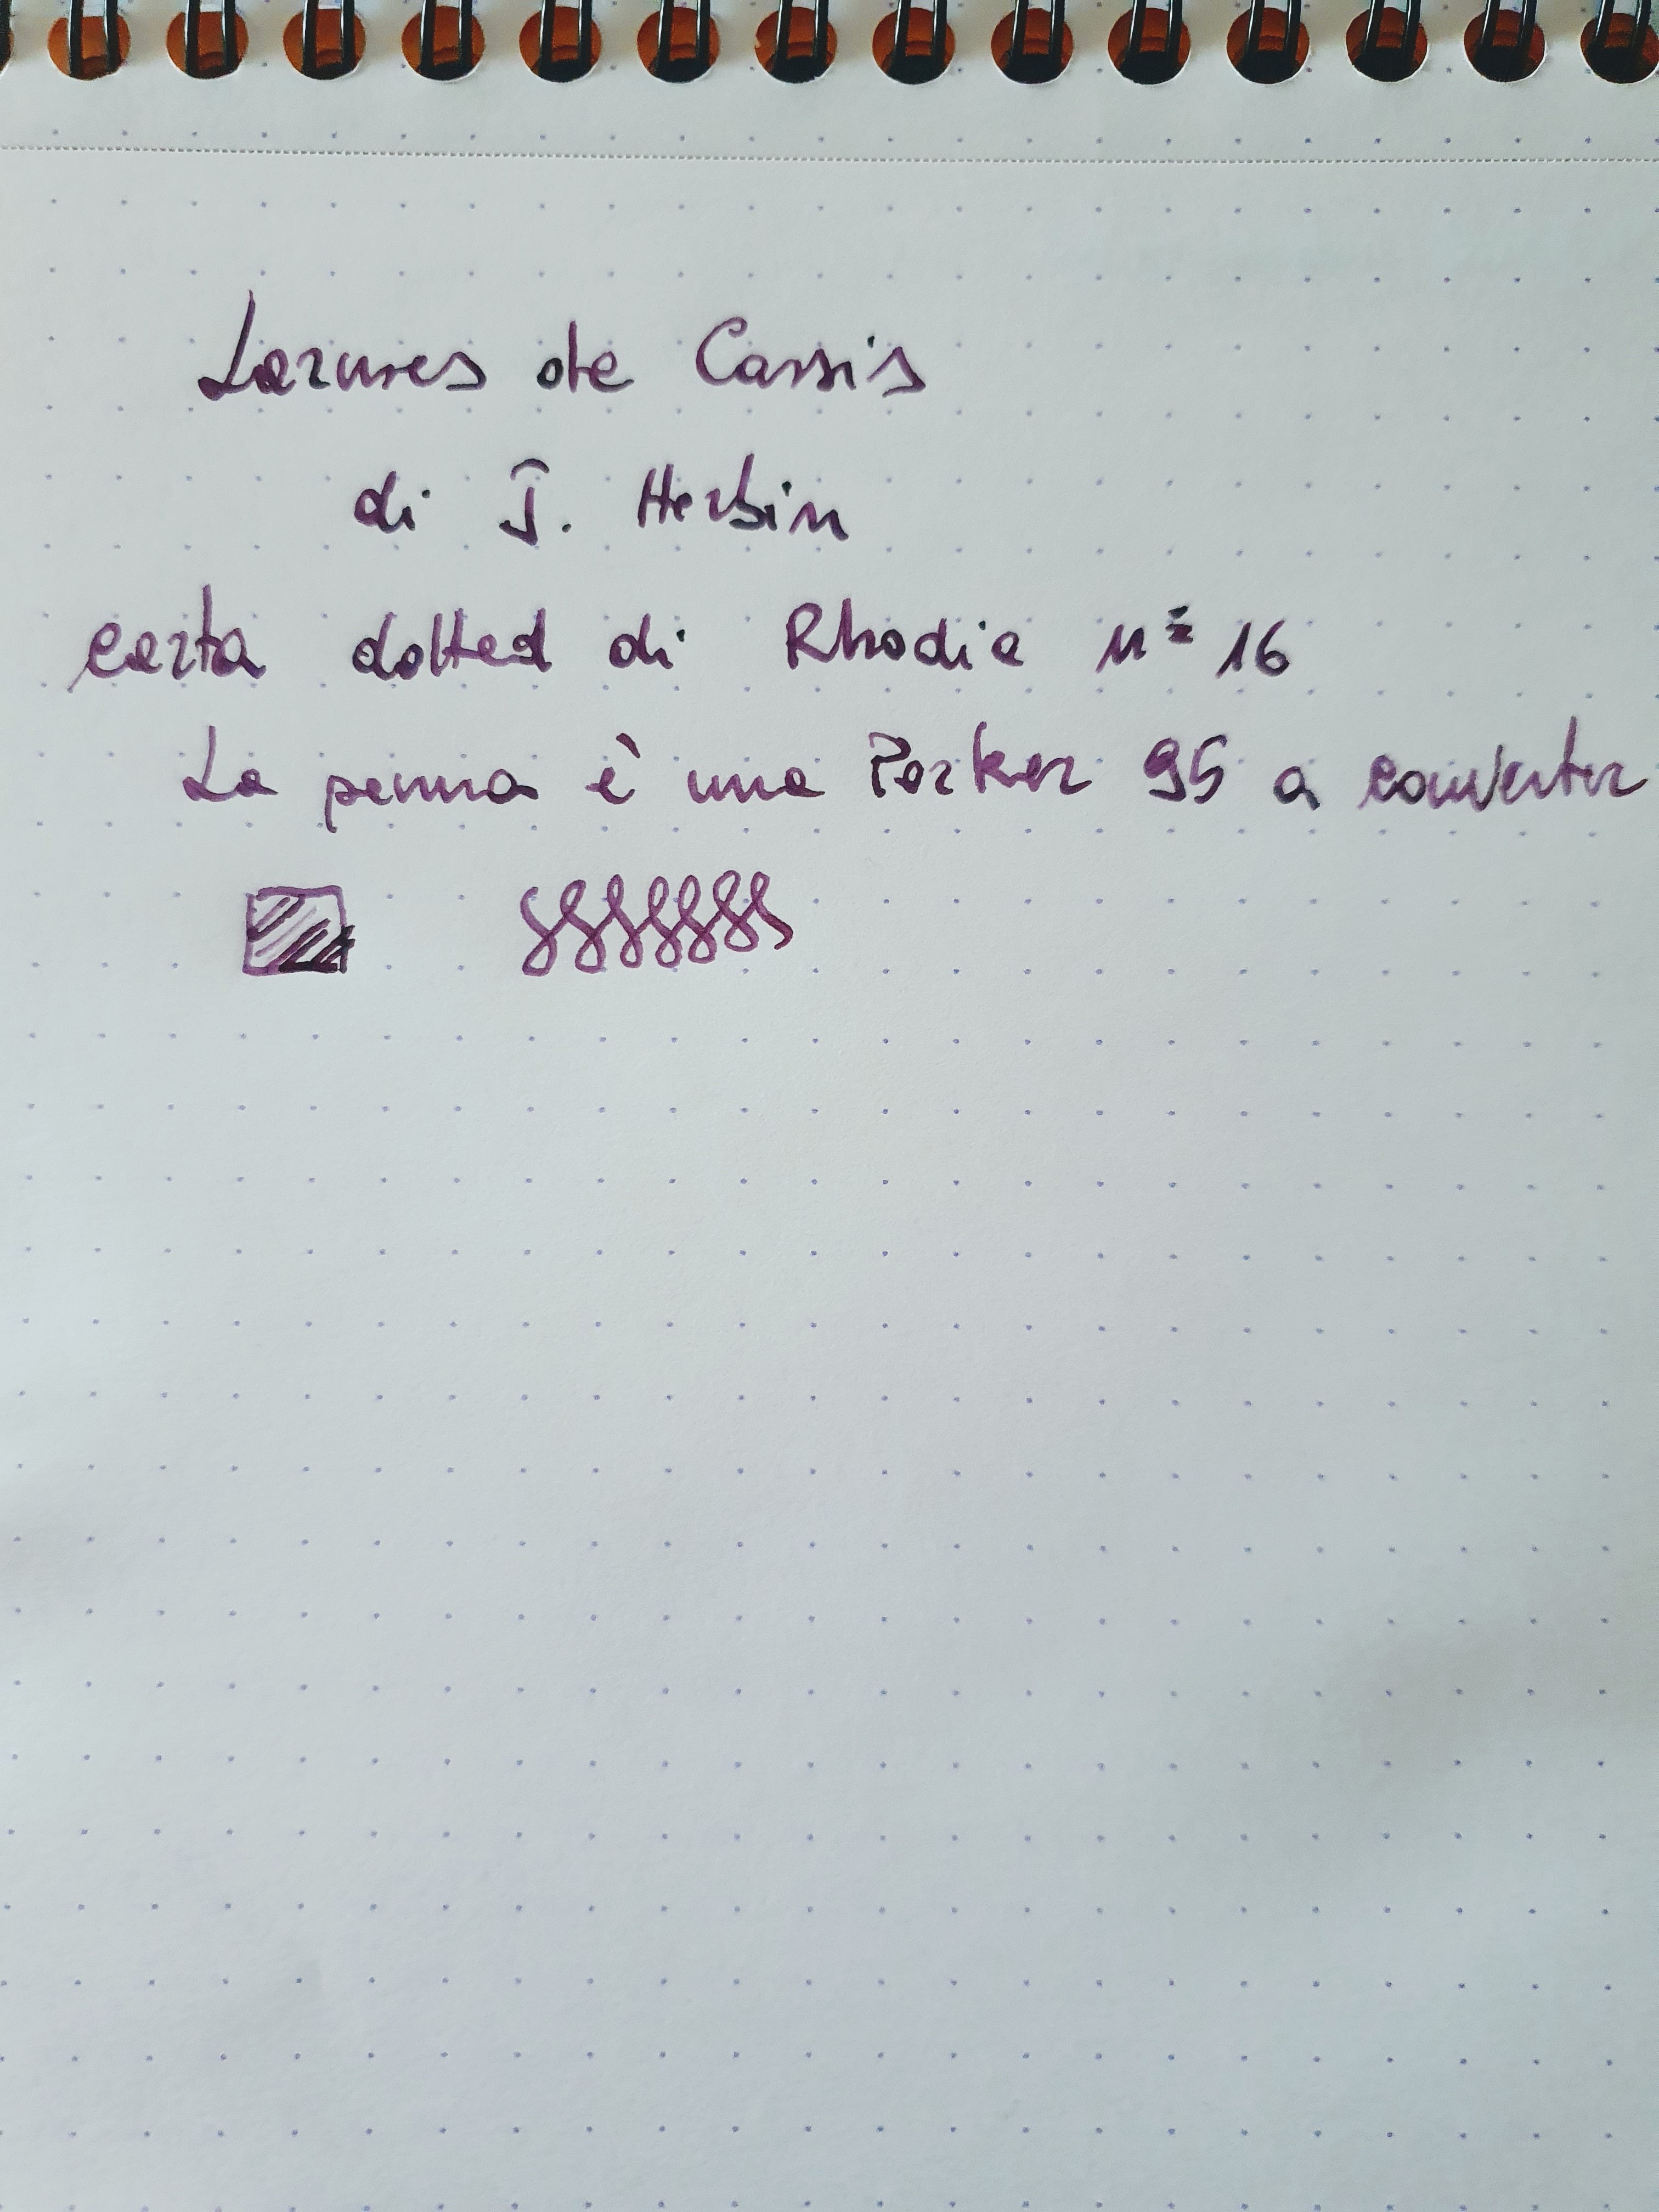 Larmes de Cassis
di J. Herbin
carta dotted di Rhodia n° 16
La penna è una Parker 95 a converter